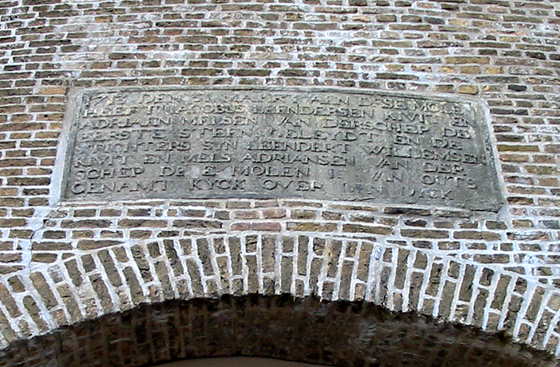 1713 DE
HEEFT IACOBUS LEENDERTSEN KIVIT EN
ADRIAEN MELSEN VAN DER SCHIEP DE
EERSTE STEEN GELEYD EN DE
STIGHTERS SYN LEENDERT WILLEMSEN
KIVIT EN MELS ADRIANSEN VAN DER
SCHIEP DE MOLEN IS VAN OUTS
GENAMT KYCK OVER DEN DYCK